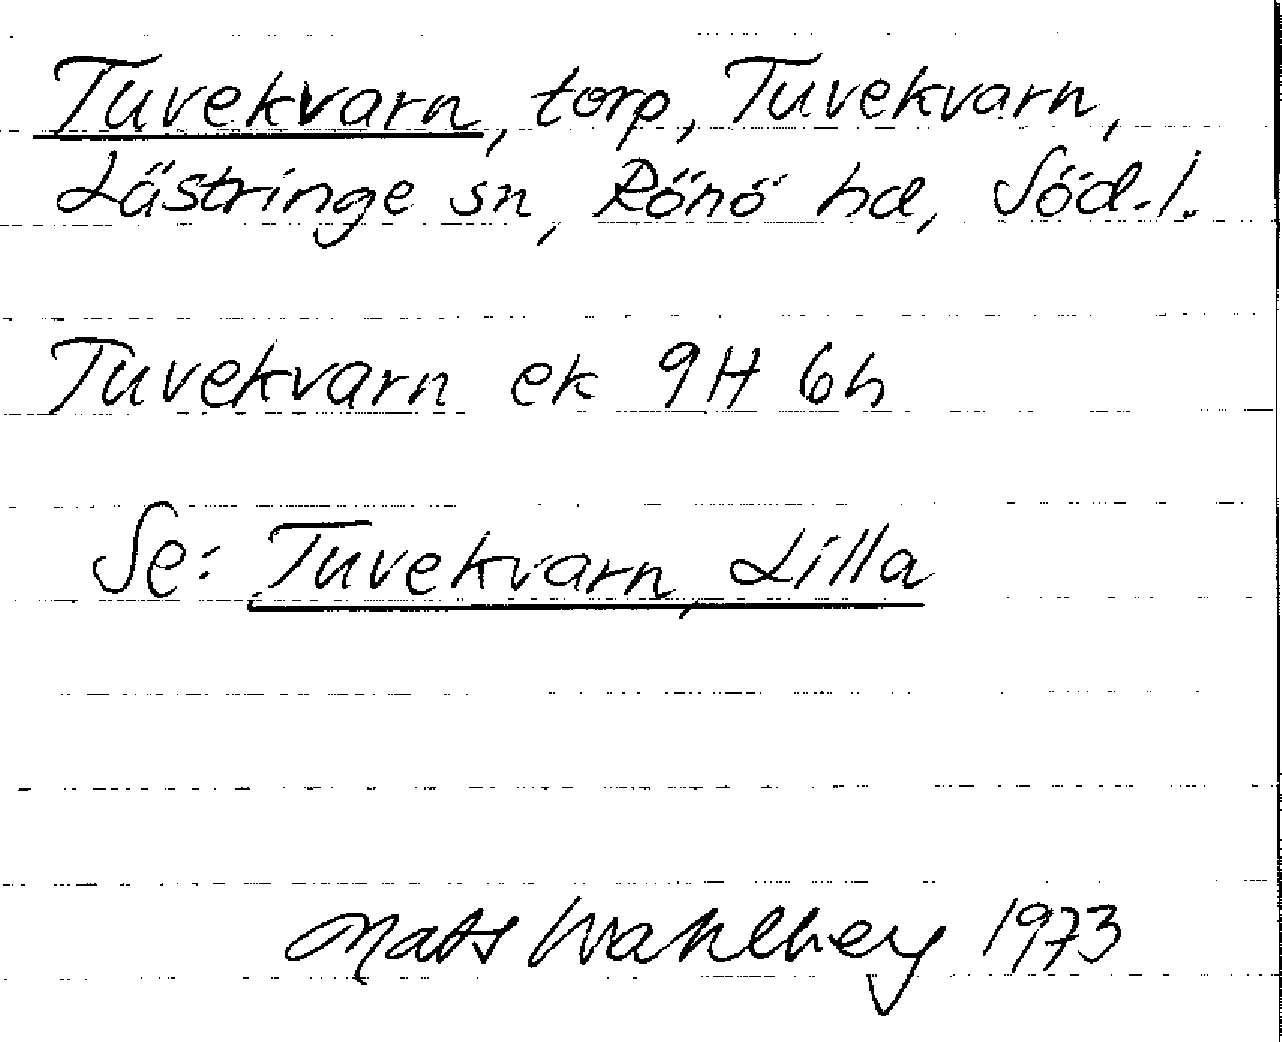 Tuvekvarn, torp, Tuvekvarn,
Lästringe sn, Rönö hd, Söd.l.
Tuvekvarn ek 9H 6h
Se: Tuvekvarn, Lilla
Mats Wahlberg 1973